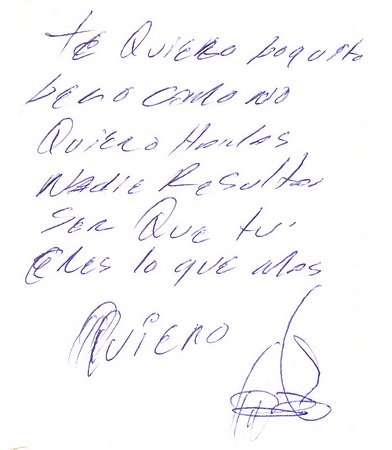 te Quiero poquito
pero como no
Quiero A mas
Nadie Resulta
ser Que tú
eres lo que mas
Quiero